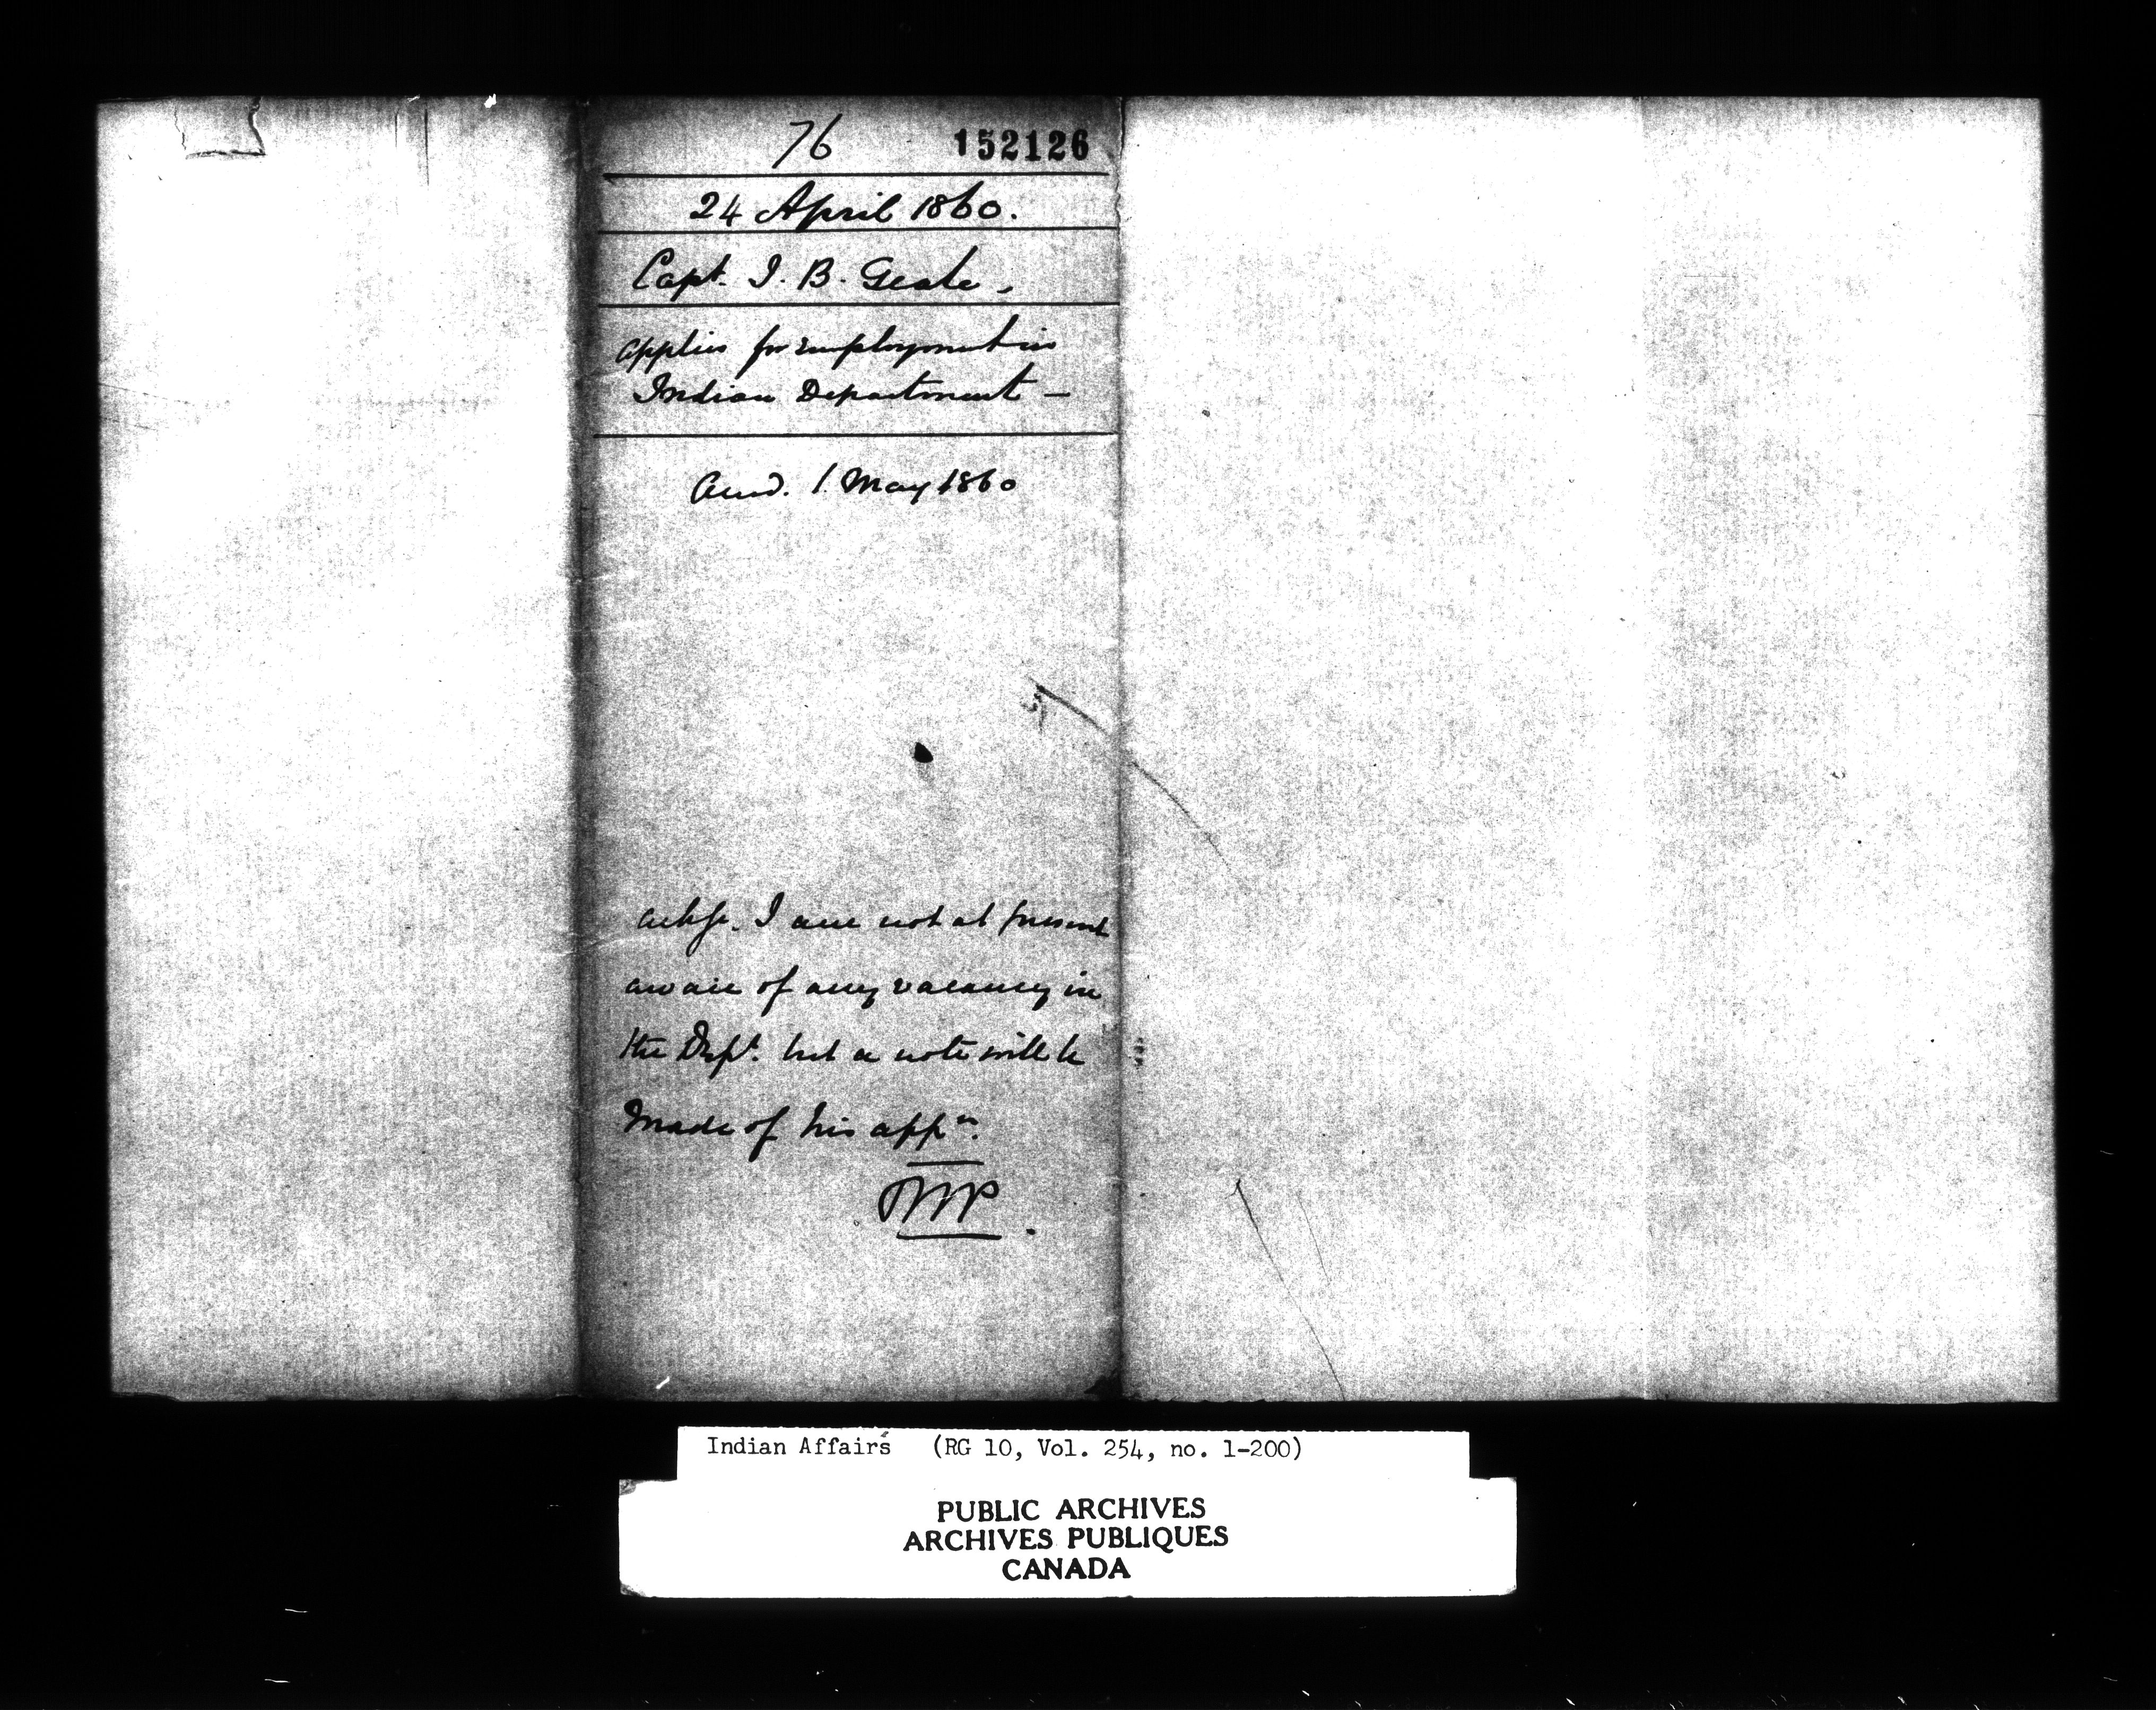 76 152126
24 April 1860.
Capt. I. B. Geale,
applies for employment in
Indian Department —
Answd. 1. May 1860
ackge. I am not at present
aware of any vacancy in
the Dept. but a note will be
made of his appn.
Indian Affairs (RG 10, Vol. 254, no. 1-200)
PUBLIC ARCHIVES
ARCHIVES PUBLIQUES
CANADA